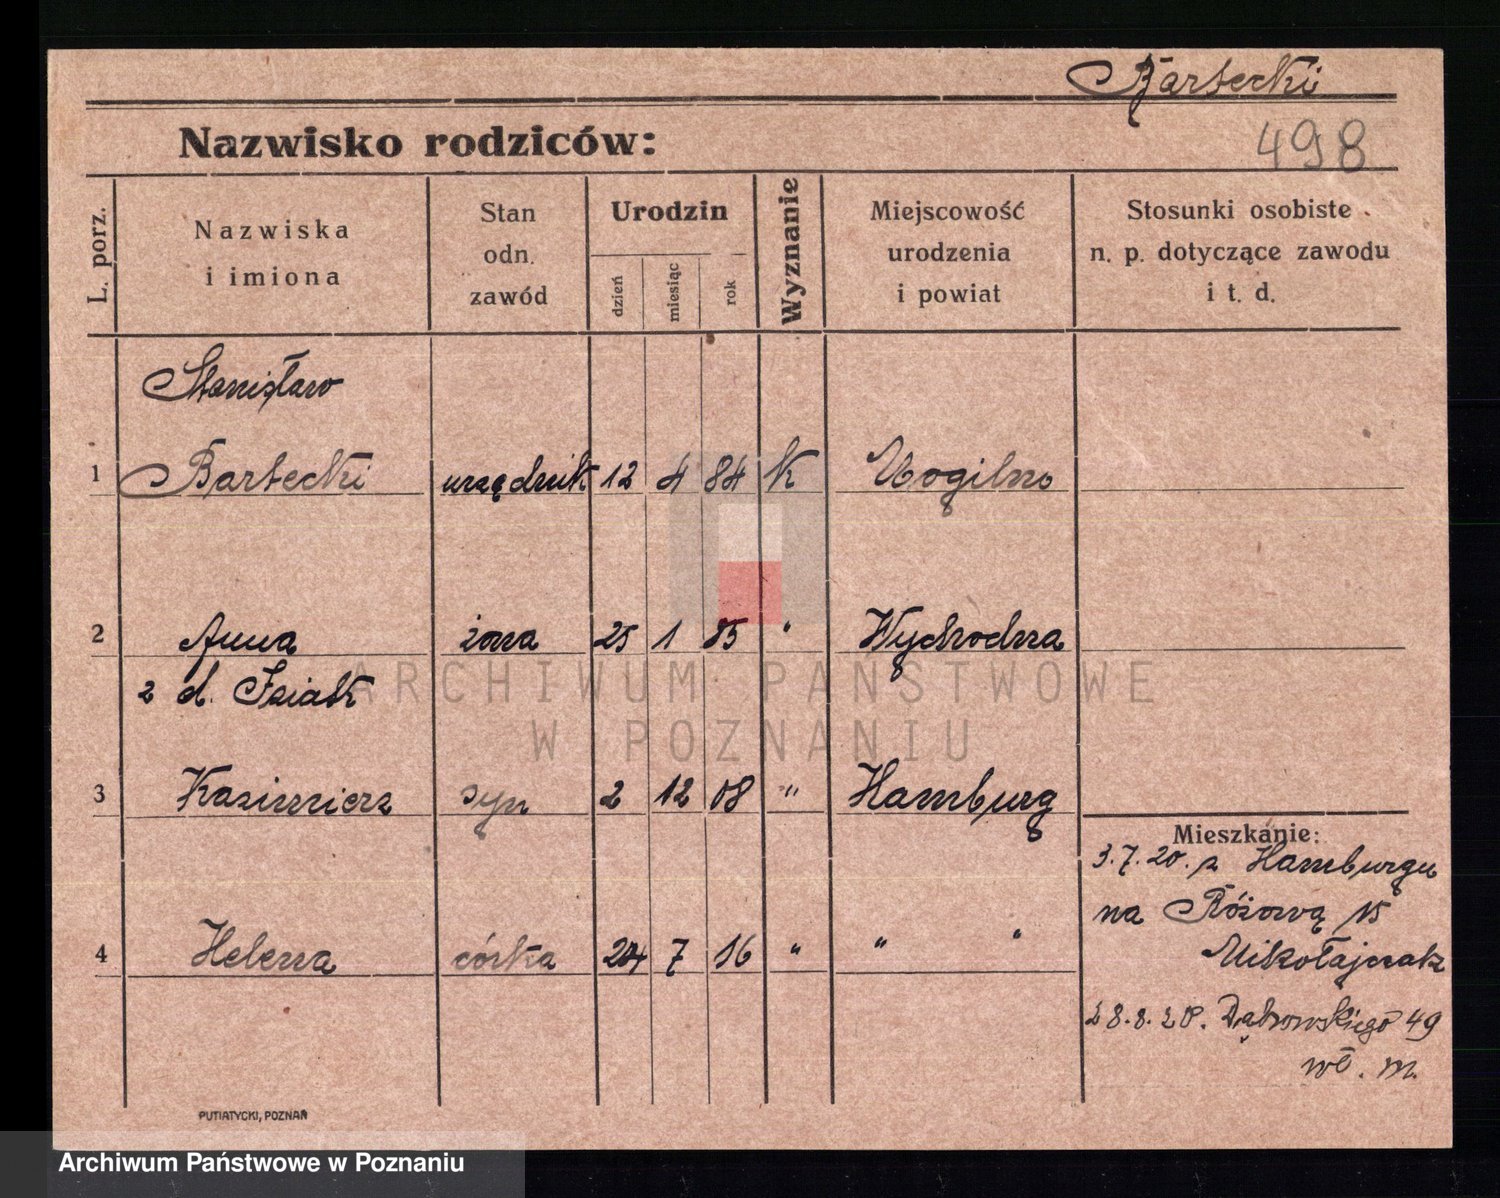 Bartecki
Nazwisko rodziców:
498
L. porz.
Nazwiska
i imiona
Stan
odn.
zawód
Urodzin
dzień
miesiąc
rok
Wyznanie
Miejscowość
urodzenia
i powiat
Stosunki osobiste
n. p. dotyczące zawodu
i t. d.
Stanisław
1 Bartecki urzędnik 12 4 84 k Mogilno
2 Anna żona 25 1 85 " Wychodna
z d.
3 Kazimierz syn 2 12 08 " Hamburg
Mieszkanie:
3.7.20. z Hamburgu
na Różową 15
Mikołajczak
4 Helena córka 24 7 16 " " "
28.8.20. Dąbrowskiego 49
wł. m.
PUTIATYCKI, POZNAŃ
ARCHIWUM PAŃSTWOWE
W POZNANIU
Archiwum Państwowe w Poznaniu